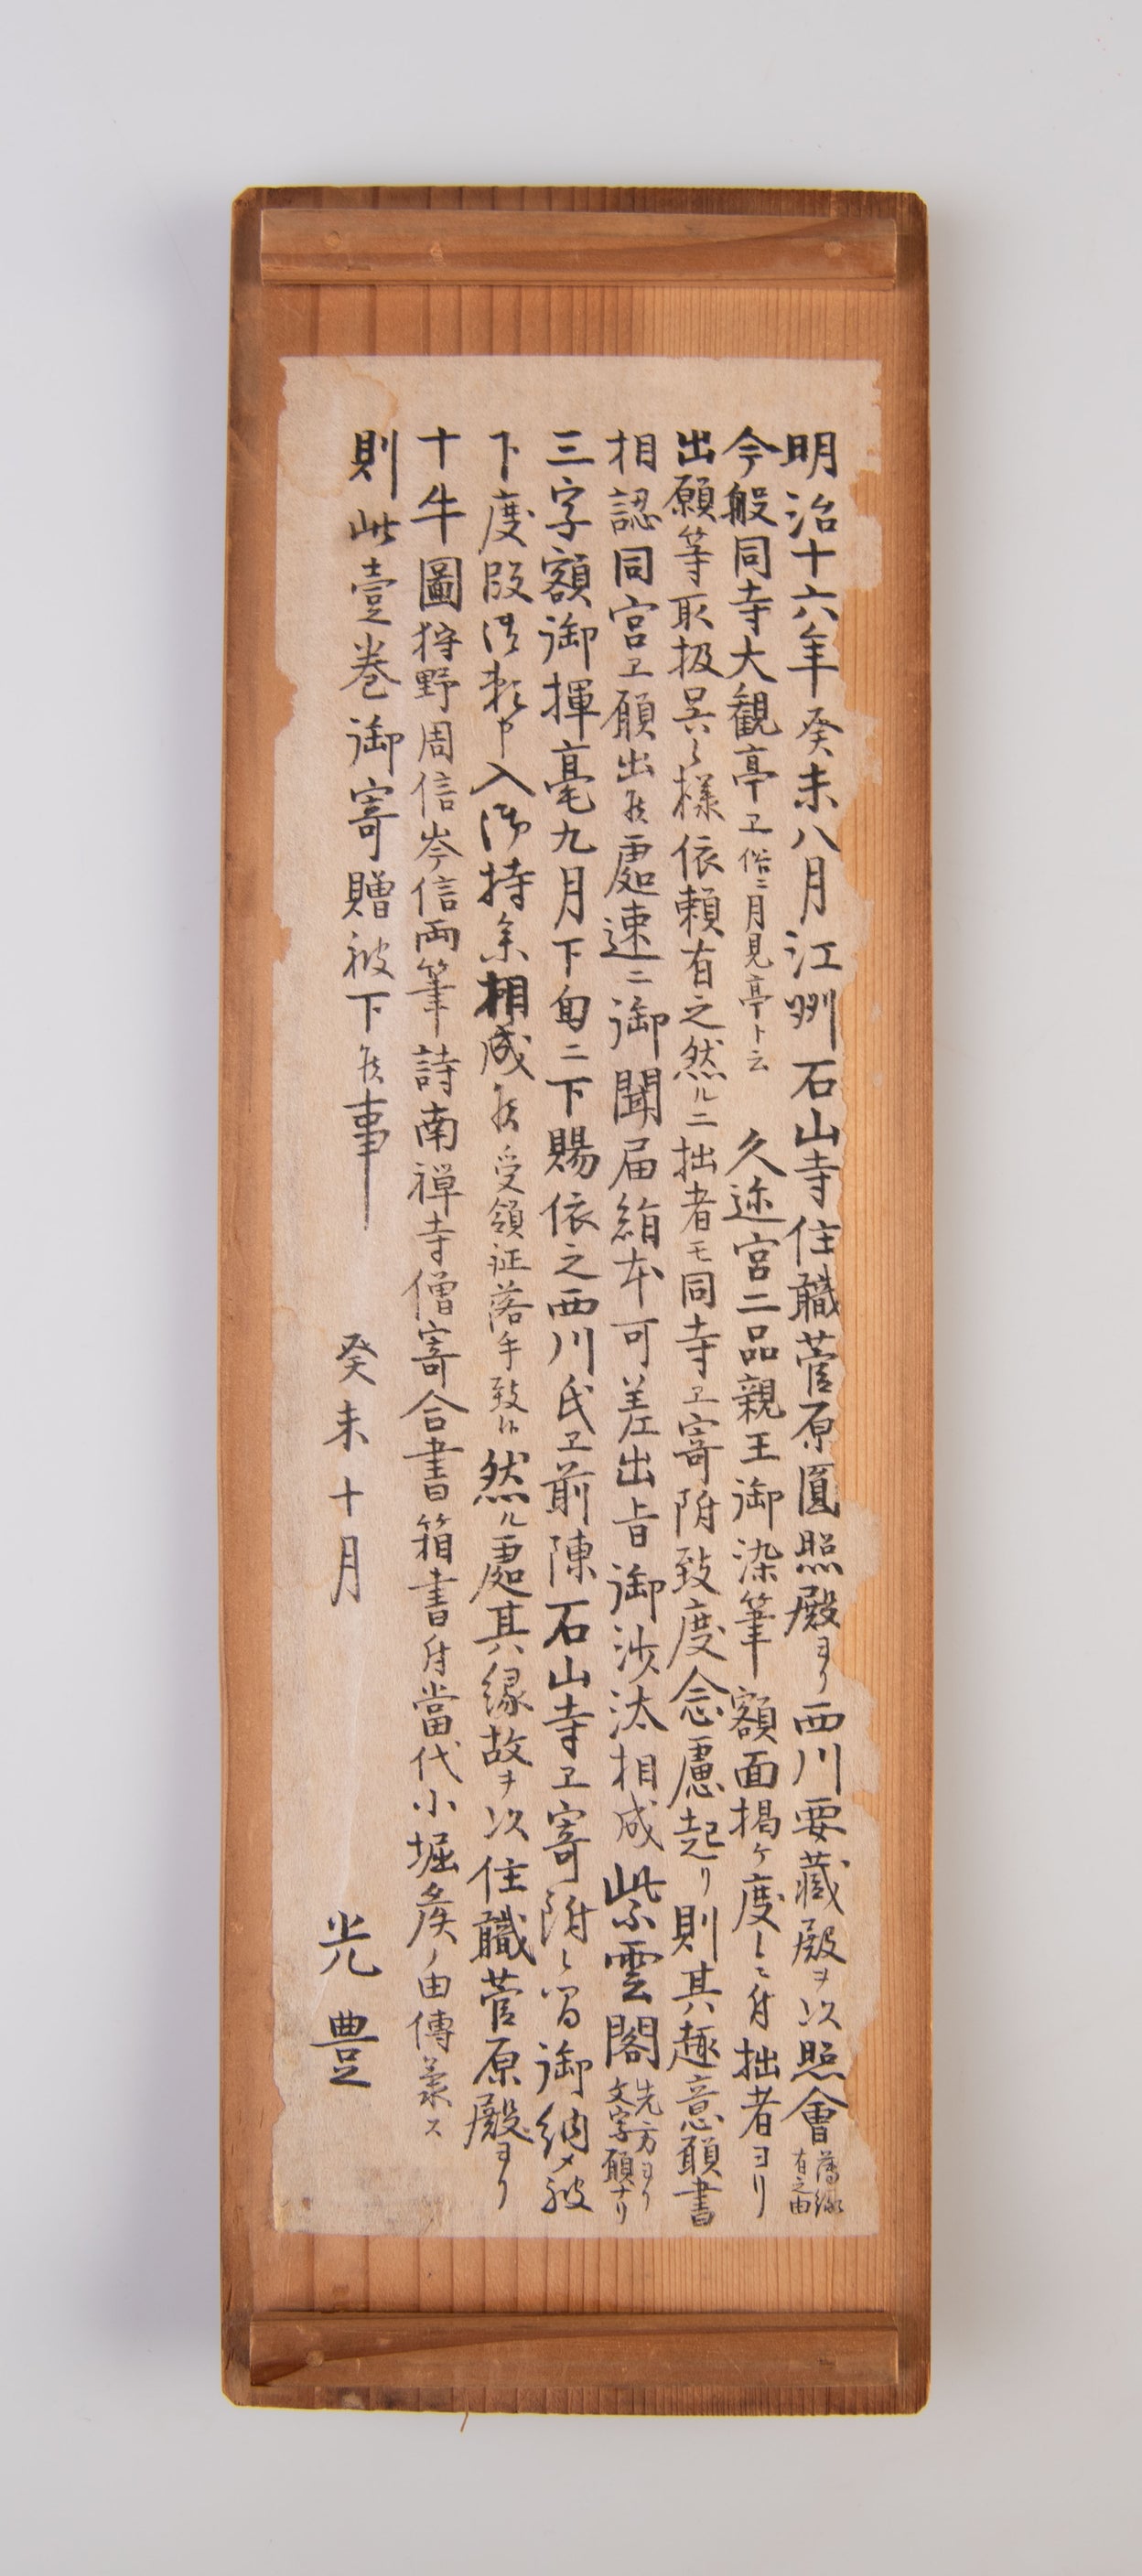 明治十六年癸未八月江州石山寺住職菅原圓照殿ヨリ西川要藏殿ヲ以照會舊縁有之由
今般同寺大観亭ヱ俗ニ月見亭ト云 久邇宮二品親王御染筆額面掲ケ度ニ付拙者ヨリ
出願等取扱呉候様依頼有之然ルニ拙者モ同寺ヱ寄附致度念慮起リ則其趣意願書
相認同宮ヱ願出候處速ニ御聞届絹本可差出旨御沙汰相成紫雲閣先方ヨリ文字願ナリ
三字額御揮毫九月下旬ニ下賜依之西川氏ヱ前陳石山寺ヱ寄附候間御納メ被
下度段御頼申入御持条相成候受領証落手致候然ル處其縁故ヲ以住職菅原殿ヨリ
十牛圖狩野周信岑信両筆詩南禅寺僧寄合書箱書付當代小堀矦ノ由傳義ス
則此壹巻御寄贈被下候事
癸未十月 光豊